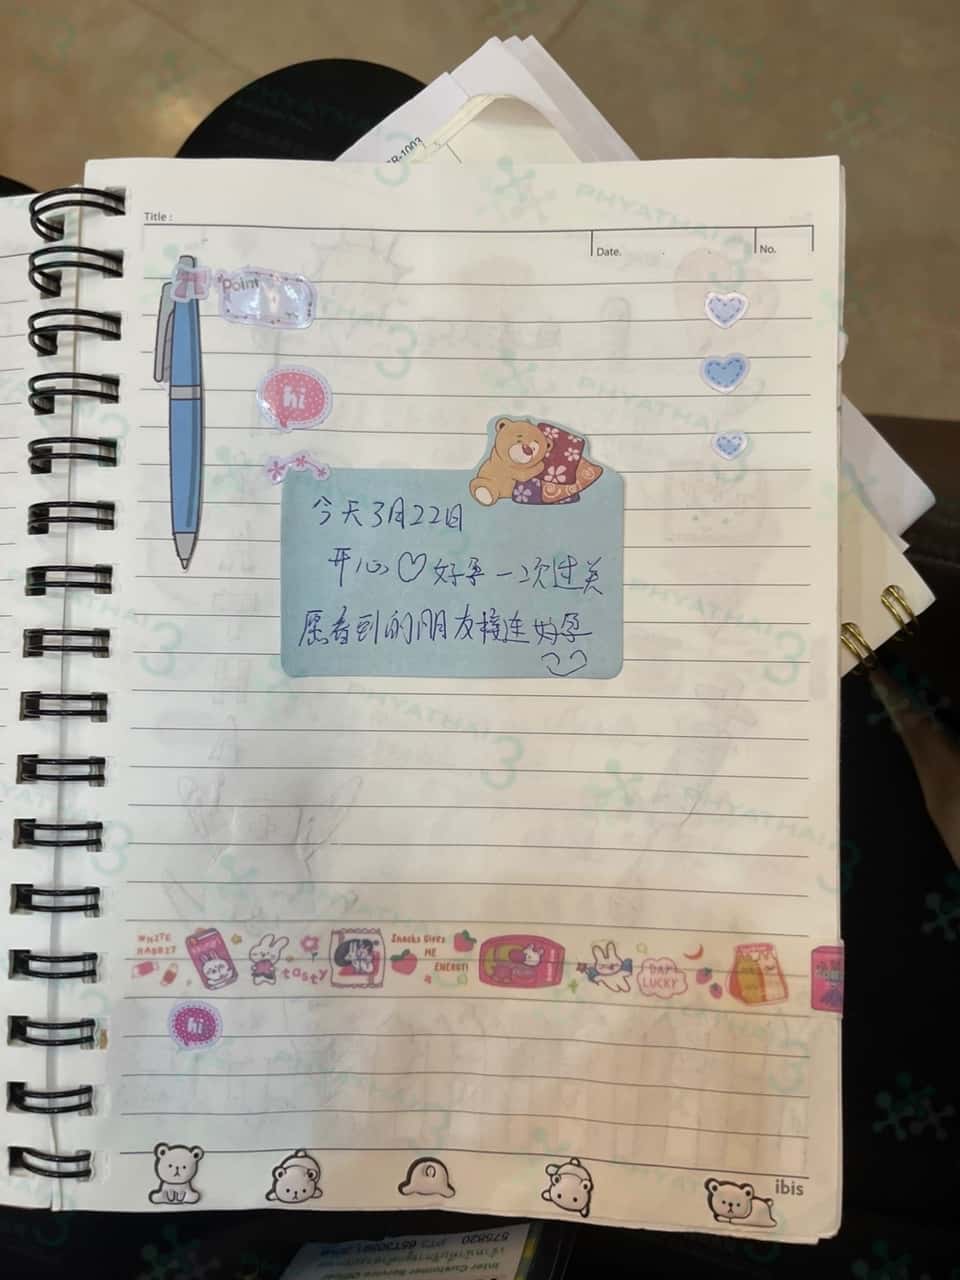 R-1003
Title :
Date.
No.
Point
hi
今天3月22日
开心♡好孕一次过关
愿看到的朋友接连好孕
WHITE RABBIT
tasty
Snacks Gives
ME
ENERGY!
DAY!
LUCKY
hi
ibis
575820
Inter Customer Service Officer
PHYATHAI 3